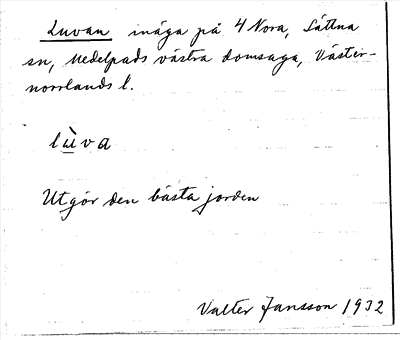 Luvan inäga på 4 Nora, Sättna
sn, Medelpads västra domsaga, Väster-
norrlands l.
lùva
Utgör den bästa jorden
Valter Jansson 1932